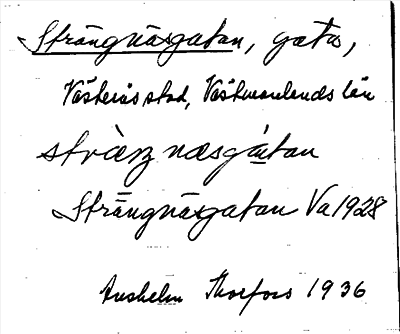 Strängnäsgatan, gata,
Västerås stad, Västmanlands län
stràŋnæsgàtan
Strängnäsgatan Va 1928
Anshelm 1936